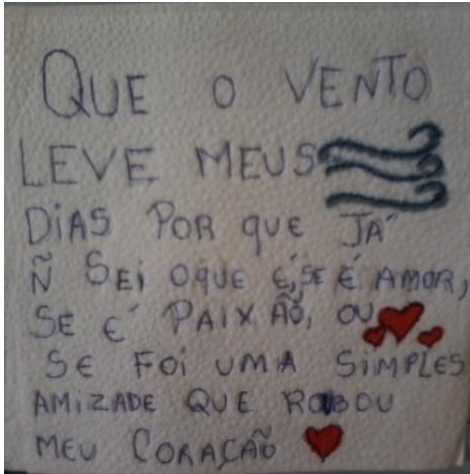 QUE O VENTO
LEVE MEUS
DIAS POR QUE JÁ
Ñ SEI OQUE É, SE É AMOR,
SE É PAIXÃO, OU
SE FOI UMA SIMPLES
AMIZADE QUE ROBOU
MEU CORAÇÃO